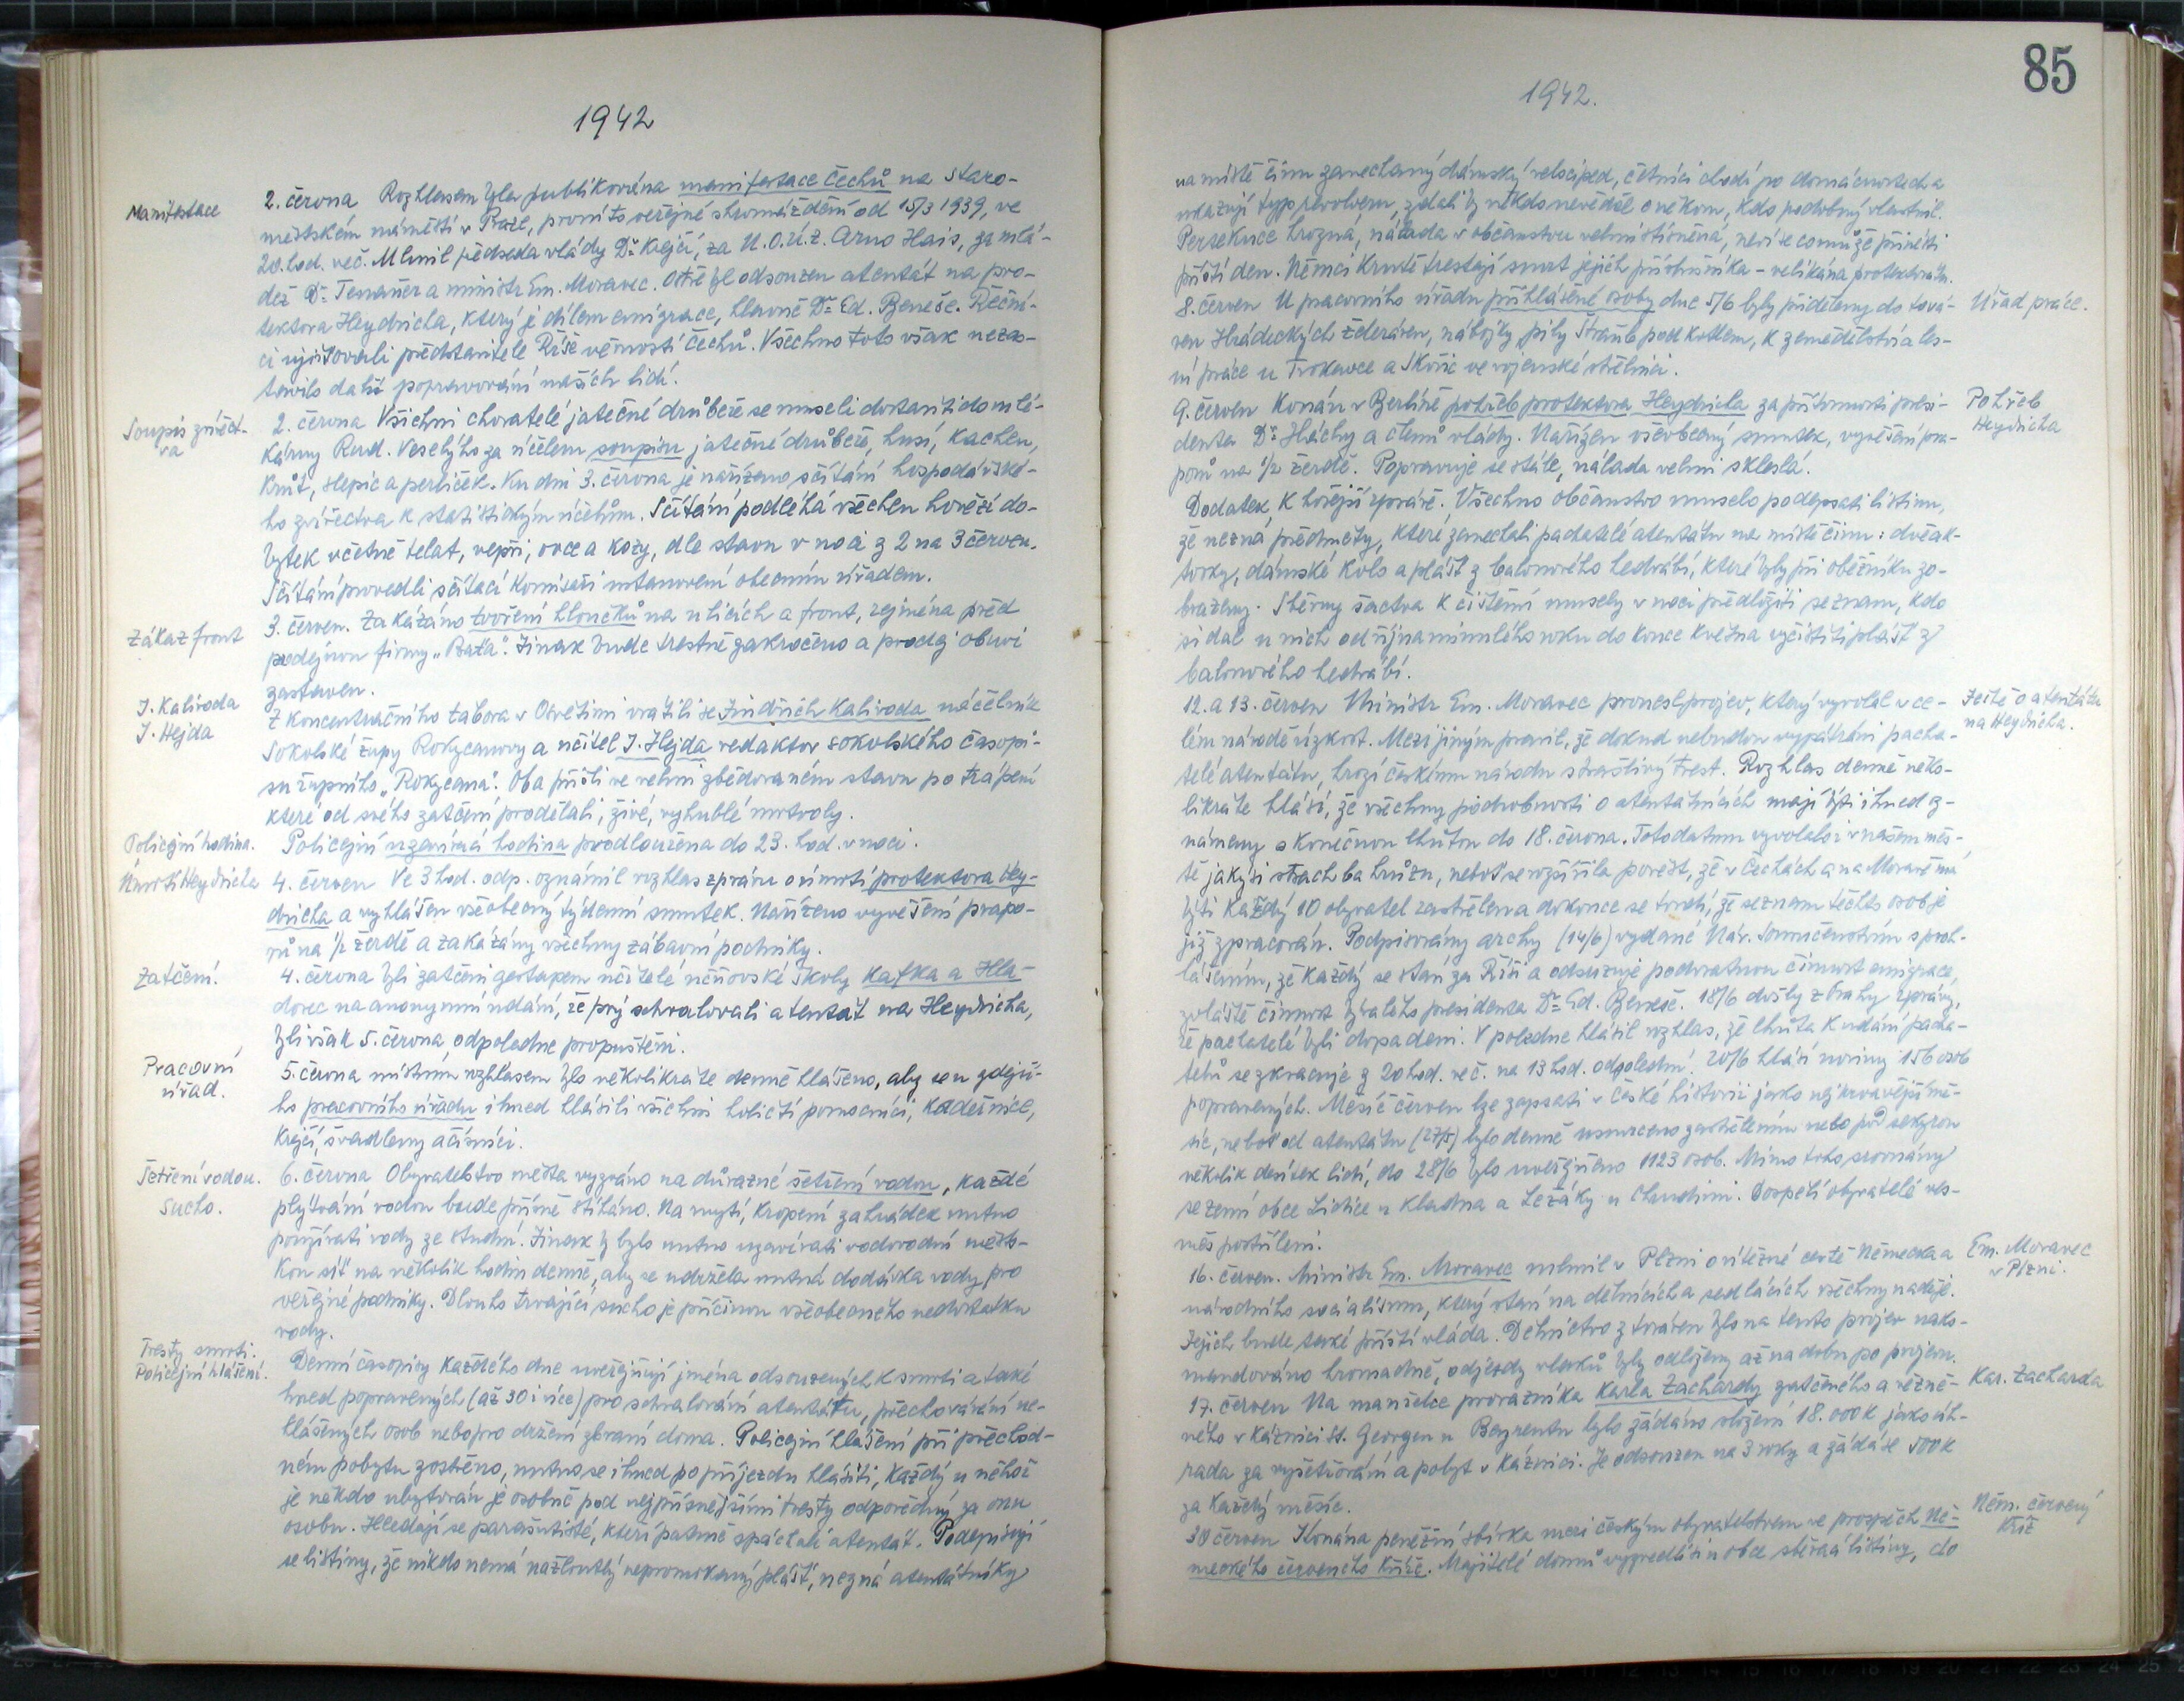 1942
Manifestace
2. června Rozhlasem byla publikována manifestace Čechů na Staro-
městském náměstí v Praze, první to veřejné shromáždění od 15/3 1939, ve
20. hod. več. Mluvil předseda vlády Dr. Krejčí, za N.O.Ú.Z. Arno Hais, za mlá-
dež Dr. Teuner a ministr Em. Moravec. Ostře byl odsouzen atentát na pro-
tektora Heydricha, který je dílem emigrace, hlavně Dr. Ed. Beneše. Řeční-
ci ujišťovali představitele Říše věrností Čechů. Všechno toto však neza-
stavilo další popravování našich lidí.
Soupis zvířect-
va
2. června Všichni chovatelé jatečné drůbeže se museli dostaviti do mlé-
kárny Rud. Veselýho za účelem soupisu jatečné drůbeže, husí, kachen,
krůt, slepic a perliček. Ku dni 3. června je nařízeno sčítání hospodářské-
ho zvířectva k statistickým účelům. Sčítání podléhá všechen hovězí do-
bytek včetně telat, vepři, ovce a kozy, dle stavu v noci z 2 na 3 červen.
Sčítání provedli sčítací komisaři ustanovení obecním úřadem.
Zákaz front
3. červen. Zakázáno tvoření hloučků na ulicích a front, zejména před
prodejnou firmy „Baťa". Jinak bude trestně zakročeno a prodej obuvi
zastaven.
J. Kalivoda
J. Hejda
Z koncentračního tabora v Osvětimi vrátili se Jindřich Kalivoda náčelník
Sokolské župy Rokycanovy a učitel J. Hejda redaktor sokolského časopi-
su župního „Rokycana". Oba přišli ve velmi zbědovaném stavu po trápení
které od svého zatčení prodělali, živé, vyhublé mrtvoly.
Policejní hodina.
Policejní uzavírací hodina prodloužena do 23. hod. v noci.
Úmrtí Heydricha
4. červen Ve 3 hod. odp. oznámil rozhlas zprávu o úmrtí protektora Hey-
dricha a vyhlášen všeobecný týdenní smutek. Nařízeno vyvěšení prapo-
rů na 1/2 žerdě a zakázány všechny zábavní podniky.
Zatčení.
4. června byli zatčeni gestapem učitelé učňovské školy Kafka a Hla-
dovec na anonymní udání, že prý schvalovali atentát na Heydricha,
byli však 5. června, odpoledne propuštěni.
Pracovní
úřad.
5. června místním rozhlasem bylo několikráte denně hlášeno, aby se u zdejší-
ho pracovního úřadu ihned hlásili všichni holičtí pomocníci, kadeřnice,
krejčí, švadleny a číšníci.
Šetření vodou.
Sucho.
6. června Obyvatelstvo města vyzváno na důrazné šetření vodou, každé
plýtvání vodou bude přísně stíháno. Na mytí, kropení zahrádek nutno
používati vody ze studní. Jinak by bylo nutno uzavírati vodovodní měst-
kou síť na několik hodin denně, aby se udržela nutná dodávka vody pro
veřejné podniky. Dlouho trvající sucho je příčinou všeobecného nedostatku
vody.
Tresty smrti.
Policejní hlášení.
Denní časopisy každého dne uveřejňují jména odsouzených k smrti a také
hned popravených (až 30 i více) pro schvalování atentátu, přechovávání ne-
hlášených osob nebo pro držení zbraní doma. Policejní hlášení při přechod-
ném pobytu zostřeno, nutno se ihned po příjezdu hlásiti, každý u něhož
je někdo ubytován je osobně pod nejpřísnějšími tresty odpovědný za onu
osobu. Hledají se parašutisté, kteří patrně spáchali atentát. Podepisují
se listiny, že nikdo nemá nažloutlý nepromokavý plášť, nezná atentátníky
85
1942.
na místě činu zanechaný dámský velociped, četníci chodí po domácnostech a
ukazují typ revolveru, zdali by někdo nevěděl o někom, kdo podobný vlastnil.
Persekuce hrozná, nálada v občanstvu velmi stísněná, neví se co může přinésti
příští den. Němci krutě trestají smrt jejich příslušníka - velikána protektorátu.
8. červen U pracovního úřadu přihlášené osoby dne 5/6 byly přiděleny do továr-
ren Hrádeckých železáren, nábojky pily Štraub pod kotlem, k zemědělství a les-
ní práce u Trokavce a Skořic ve vojenské střelnici.
Úřad práce.
9. červen Konán v Berlíně pohřeb protektora Heydricha za přítomnosti presi-
denta Dr. Háchy a členů vlády. Nařízen všeobecný smutek, vyvěšení pra-
porů na 1/2 žerdě. Popravuje se stále, nálada velmi skleslá.
Pohřeb
Heydricha
Dodatek k hořejší zprávě. Všechno občanstvo muselo podepsati listinu,
že nezná předměty, které zanechali pachatelé atentátu na místě činu: dvě ak-
tovky, dámské kolo a plášť z balonového hedvábí, které byly při oběžníku zo-
brazeny. Sběrny šactva k čištění musely v noci předložiti seznam, kdo
si dal u nich od října minulého roku do konce května vyčistiti plášť z
balonového hedvábí.
12. a 13. červen Ministr Em. Moravec pronesl projev, který vyvolal v ce-
lém národě úzkost. Mezi jiným pravil, že dokud nebudou vypátráni pacha-
telé atentátu, hrozí českému národu strašlivý trest. Rozhlas denně něko-
likráte hlásí, že všechny podrobnosti o atentátnících mají býti ihned oz-
námeny s konečnou lhůtou do 18. června. Toto datum vyvolalo i v našem měs-
tě jakýsi strach ba hrůzu, neboť se rozšířila pověst, že v Čechách a na Moravě má
býti každý 10 obyvatel zastřelen a dokonce se tvrdí, že seznam těchto osob je
již zpracován. Podpisovány archy (14/6) vydané Nár. Souručenstvím s proh-
lášením, že každý se staví za Říši a odsuzuje podvratnou činnost emigrace,
zvláště činnost bývalého presidenta Dr. Ed. Beneše. 18/6 došly z Prahy zprávy,
že pachatelé byli dopadeni. V poledne hlásil rozhlas, že lhůta k udání pacha-
telů se zkracuje z 20 hod. več. na 13 hod. odpolední. 20/6 hlásí noviny 156 osob
popravených. Měsíc červen lze zapsati v české historii jako nejkrvavější mě-
síc, neboť od atentátu (27/5) bylo denně usmrceno zastřelením nebo pod sekyrou
několik desítek lidí, do 28/6 bylo uveřejněno 1123 osob. Mimo toho srovnány
se zemí obce Lidice u Kladna a Ležáky u Chrudimi. Dospělí obyvatelé ves-
měs postříleni.
Ještě o atentátu
na Heydricha.
16. červen. Ministr Em. Moravec mluvil v Plzni o vítězné cestě Německa a
národního socialismu, který staví na dělnících a sedlácích všechny naděje.
Jejich bude také příští vláda. Dělnictvo z továren bylo na tento projev nako-
mandováno hromadně, odjezdy vlaků byly odloženy až na dobu po projevu.
Em. Moravec
v Plzni.
17. červen Na manželce prorazníka Karla Zachardy zatčeného a vězně-
ného v káznici St. Georgen u Bayreutu bylo žádáno složení 18.000 K jako úh-
rada za vyšetřování a pobyt v káznici. Je odsouzen na 3 roky a žádá se 500 K
za každý měsíc.
Kar. Zacharda
30 červen Konána peněžní sbírka mezi českým obyvatelstvem ve prospěch Ně-
meckého červeného kříže. Majitelé domů vyzvedli si u obce sběrací listiny, do
Něm. červený
kříž